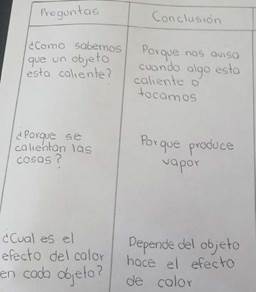 Preguntas
Conclusión
¿Como sabemos
que un objeto
esta caliente?
Porque nos avisa
cuando algo esta
caliente o
tocamos
¿Porque se
calientan las
cosas?
Porque produce
vapor
¿Cual es el
efecto del calor
en cada objeto?
Depende del objeto
hace el efecto
de calor